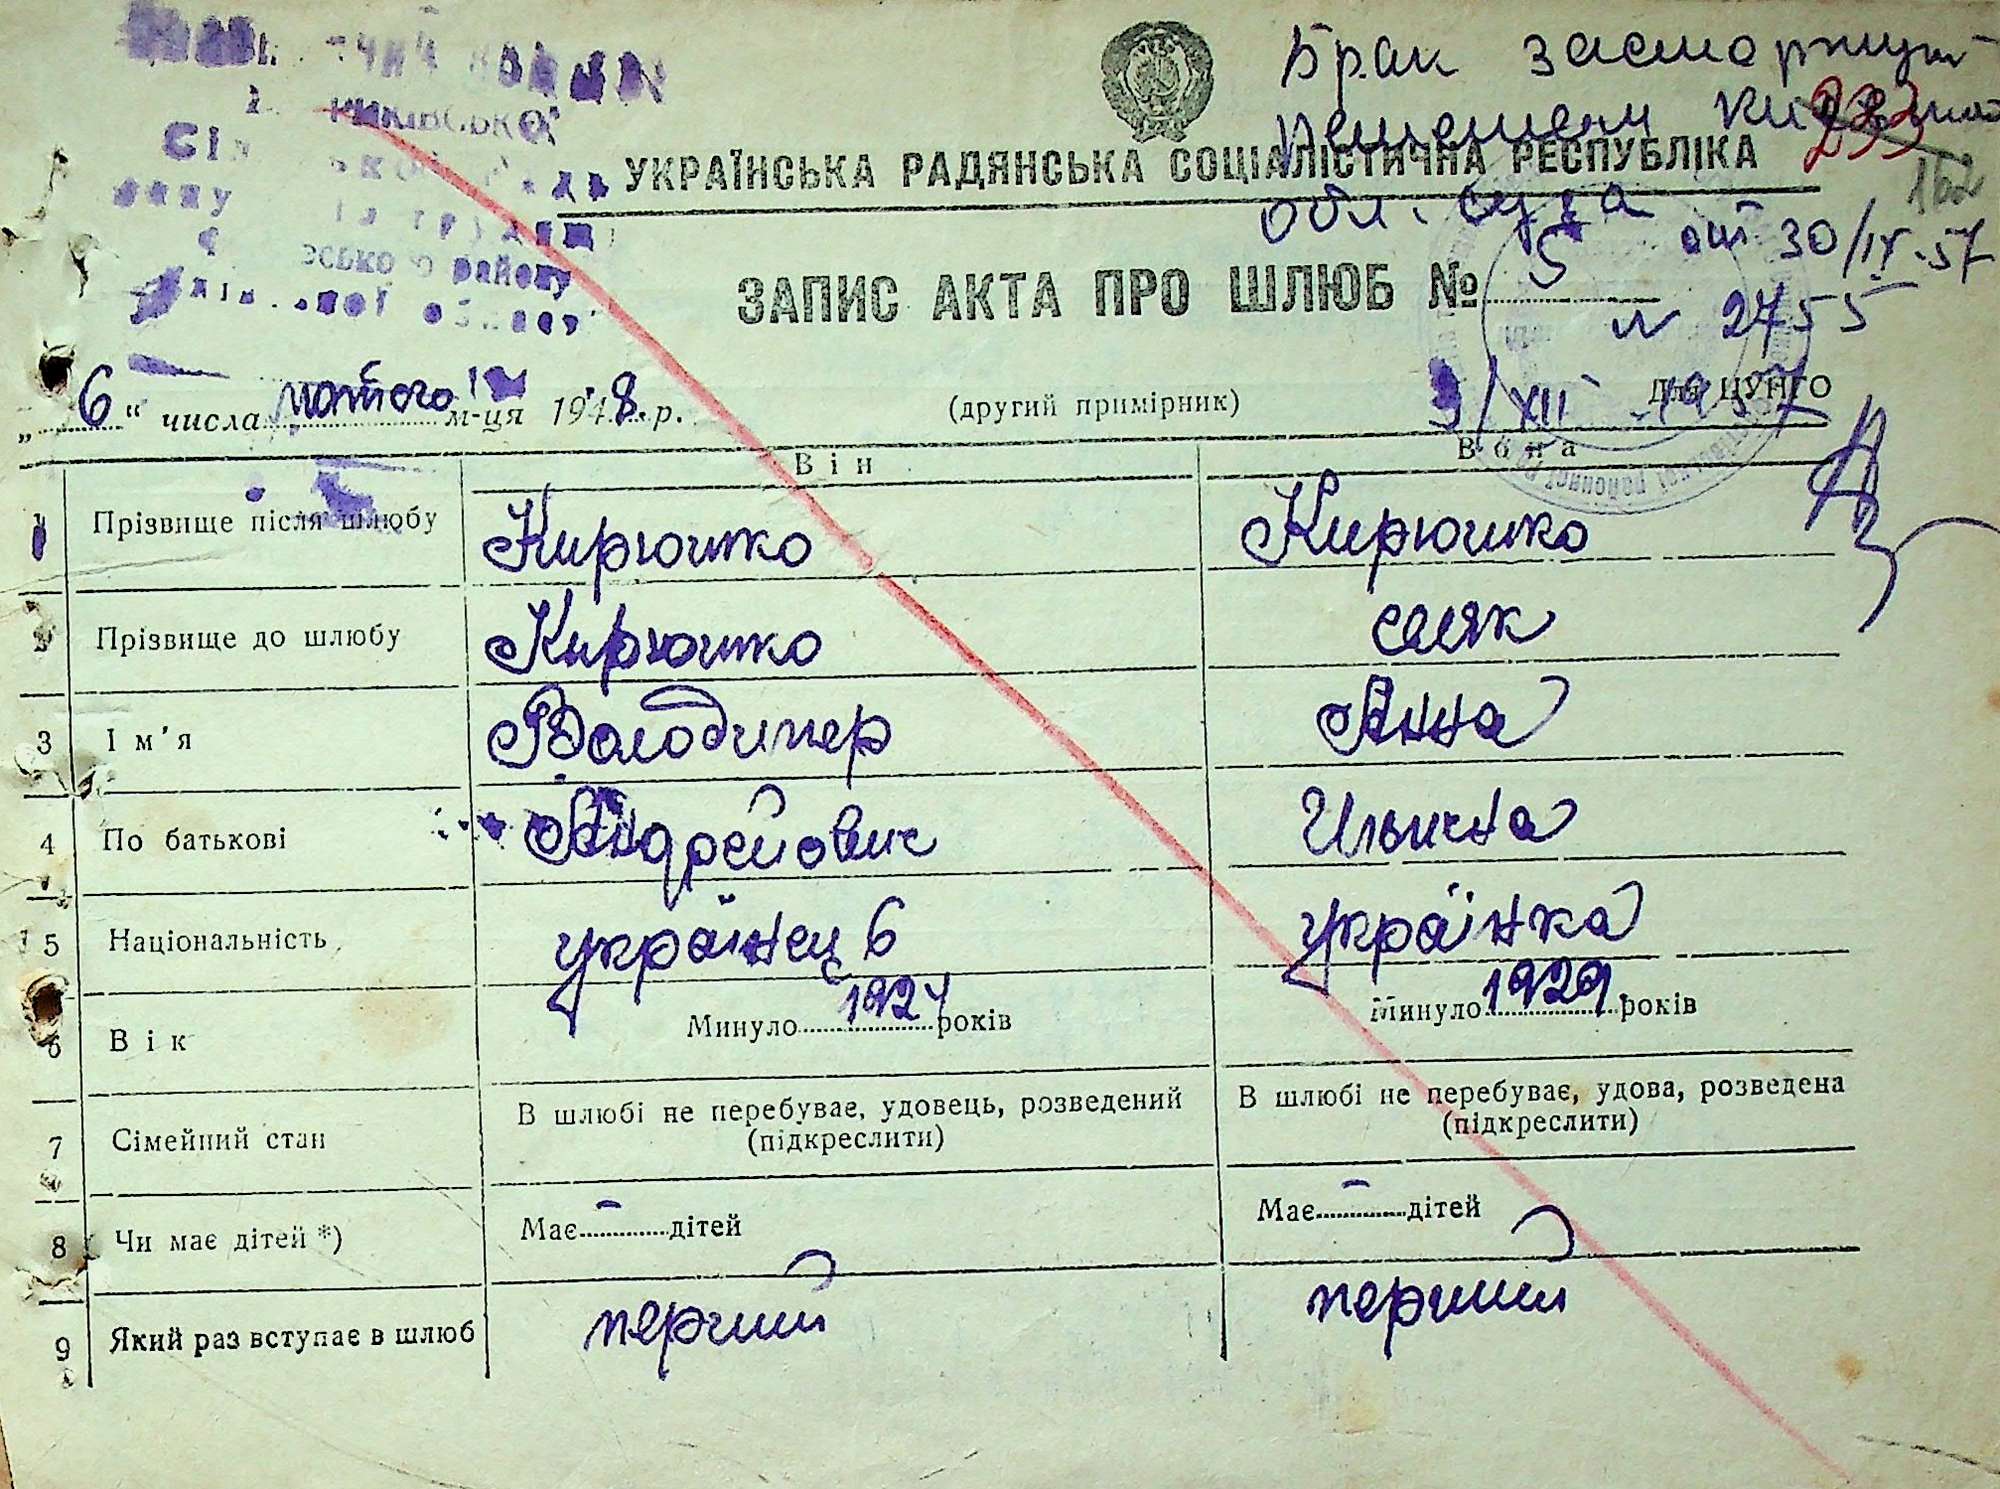 Брак засторгнут
решением Киевского
233
162
УКРАЇНСЬКА РАДЯНСЬКА СОЦІАЛІСТИЧНА РЕСПУБЛІКА
обл. суда от 30/IX-57
ЗАПИС АКТА ПРО ШЛЮБ № 5
N 2455
„6“ числа лютого м-ця 1948 р. (другий примірник) Для ЦУНГО
9/XII 1957
Він Вона
1 Прізвище після шлюбу Кирюшко Кирюшко
2 Прізвище до шлюбу Кирюшко
3 Ім’я Володимер Анна
4 По батькові Андрейович Ильична
5 Національність українец українка
6 Вік Минуло 1924 років Минуло 1929 років
7 Сімейний стан В шлюбі не перебуває, удовець, розведений (підкреслити) В шлюбі не перебуває, удова, розведена (підкреслити)
8 Чи має дітей *) Має - дітей Має - дітей
9 Який раз вступає в шлюб перший перший